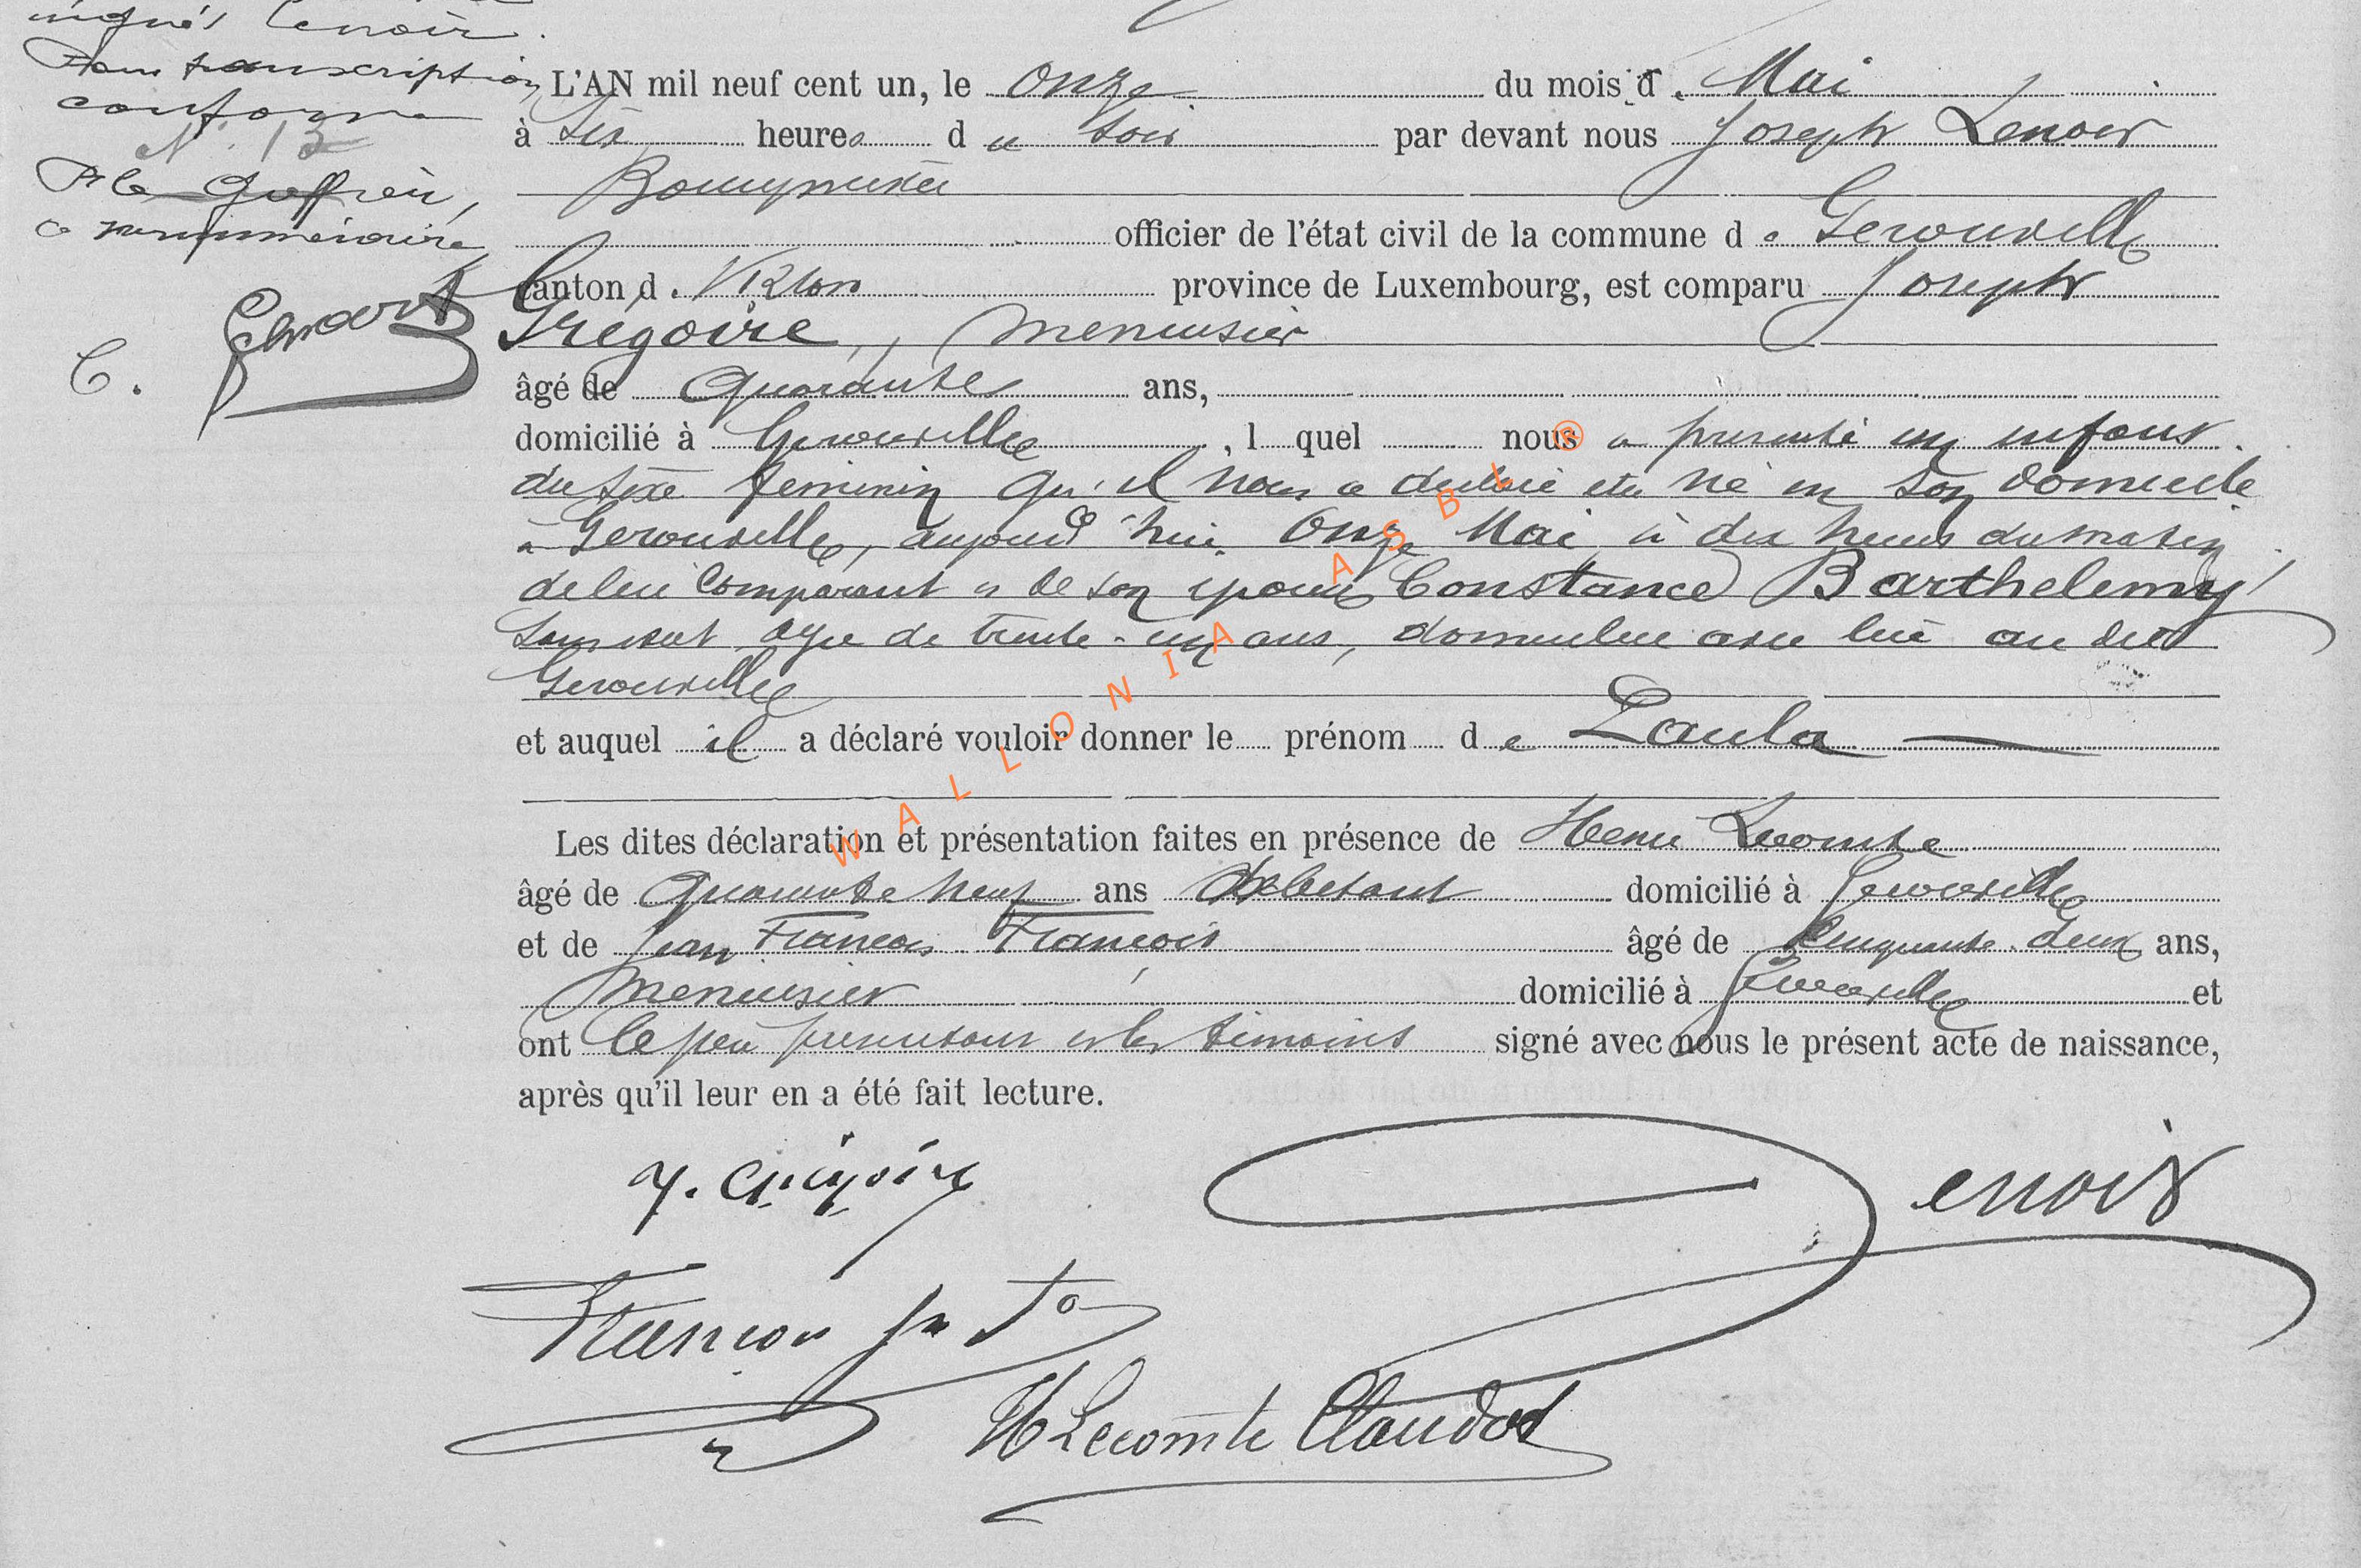 Lenoir.
Pour transcription
conforme
N° 13
P. le Greffier,
surnuméraire
C.
L'AN mil neuf cent un, le Onze du mois d Mai
à six heures du soir par devant nous Joseph Lenoir
Bourgmestre
officier de l'état civil de la commune de Gerouville
canton d Virton province de Luxembourg, est comparu Joseph
Grégoire, menuisier
âgé de Quarante ans,
domicilié à Gerouville, l quel nous a présenté un enfant
du sexe féminin qu'il nous a déclaré être né en son domicile
à Gerouville, aujourd'hui Onze Mai à dix heures du matin
de lui comparant et de son épouse Constance Barthelemy
âgée de trente-un ans, domiciliée avec lui au dit
Gerouville
et auquel il a déclaré vouloir donner le prénom de Paula
Les dites déclaration et présentation faites en présence de Henri Lecomte
âgé de Quarante neuf ans débitant domicilié à Gerouville
et de Jean François François âgé de Cinquante deux ans,
menuisier domicilié à Gerouville et
ont le père présentant et les témoins signé avec nous le présent acte de naissance,
après qu'il leur en a été fait lecture.
J. Grégoire
Lenoir
François
H Lecomte Claudot
WALLONIA ASBL ®